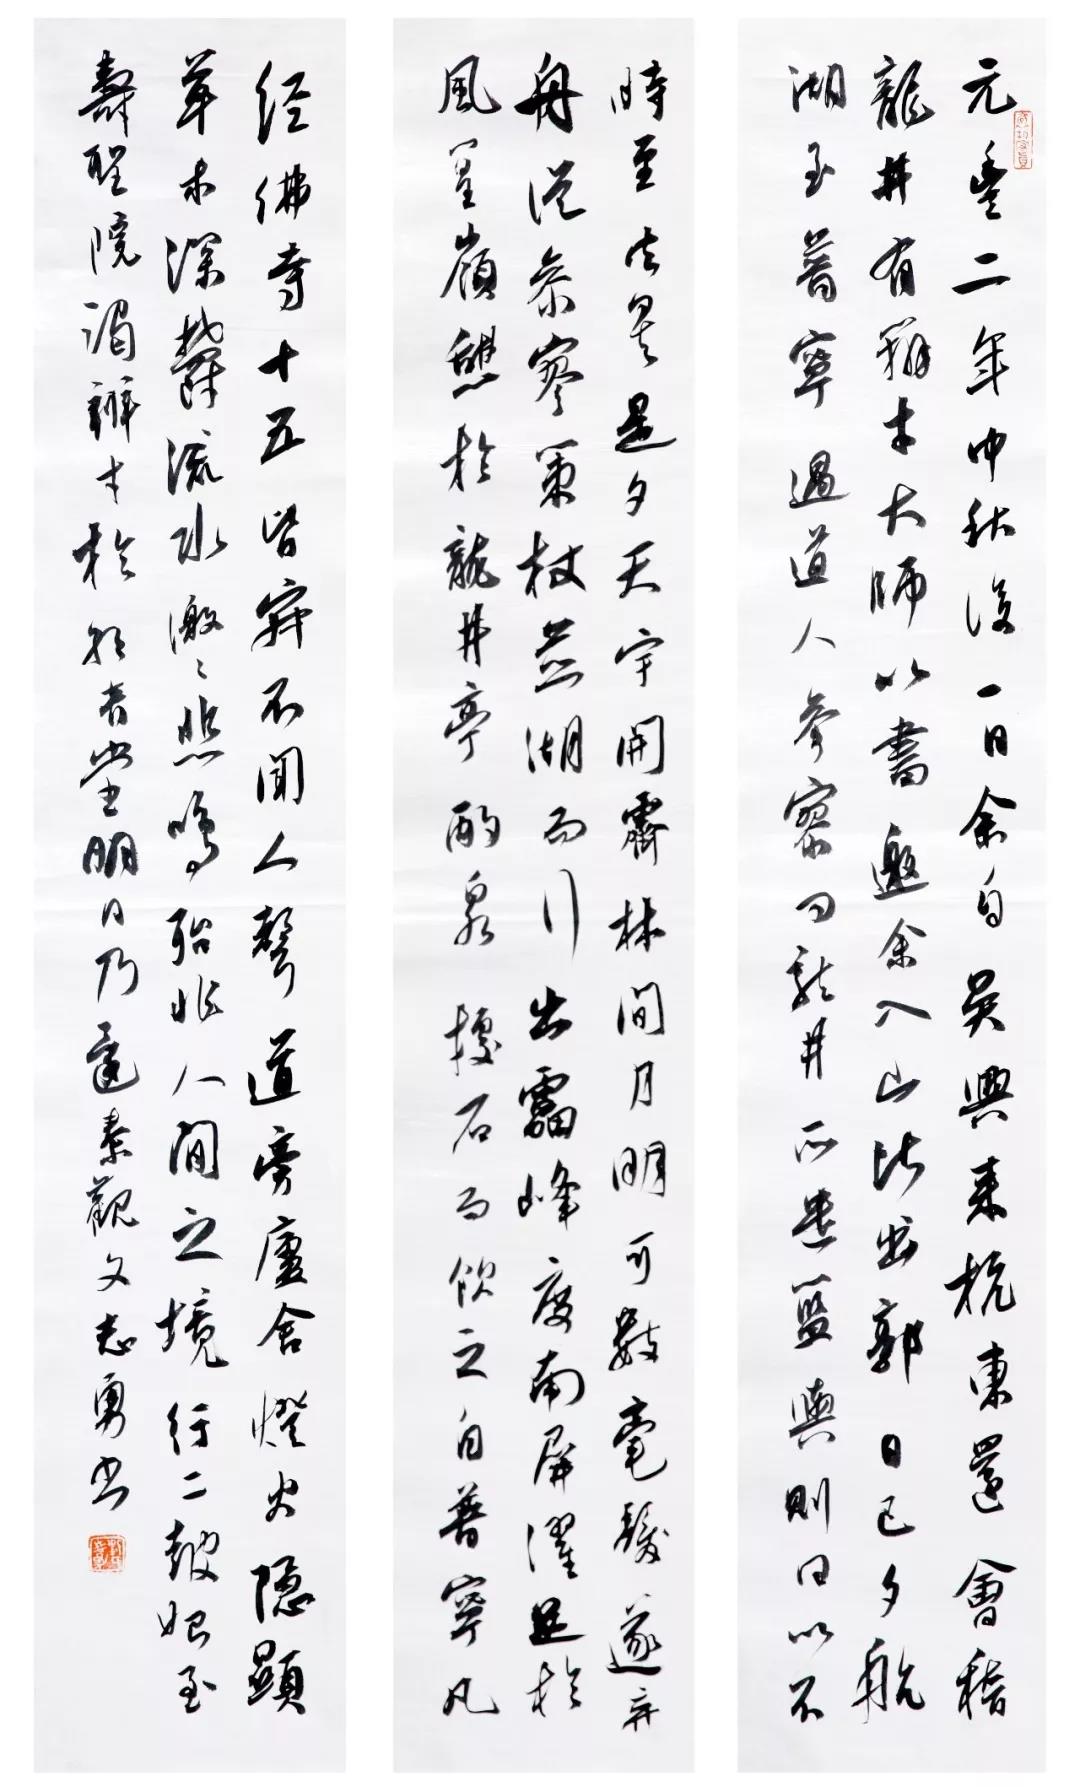 元豐二年中秋後一日余自吳興来杭東還會稽
龍井有辨才大師以書邀余入山比出郭日已夕航
湖至普寧遇道人參寥問龍井所遣籃輿則曰以不
時至去矣是夕天宇開霽林間月明可數毫髮遂弃
舟從參寥策杖並湖而行出雷峰度南屏濯足於
風篁嶺憩於龍井亭酌泉據石而飲之自普寧凡
經佛寺十五皆寂不聞人聲道旁廬舍燈火隱顯
草木深鬱流水激々悲鳴殆非人間之境行二鼓始至
壽聖院謁辨才於朝音堂明日乃還秦觀文志勇书